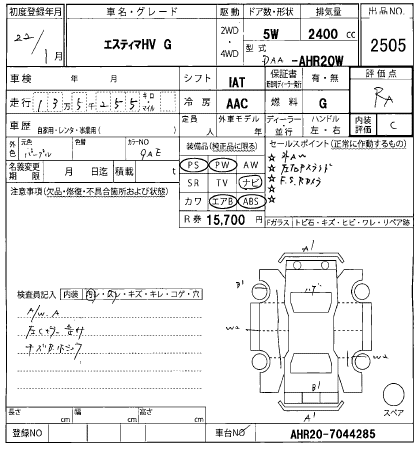 初度登録年月 車名・グレード 駆動 ドア数・形状 排気量 出品NO.
22/1月 エスティマHV G 2WD・4WD 5W 2400 cc 2505
型式 DAA-AHR20W
車検 年 月 シフト IAT 保証書 有・無 評価点
走行 135255 キロ・マイル 冷房 AAC 燃料 G RA
車歴 自家用・レンタ・事業用( ) 定員 人 外車モデル年 年 ディーラー・並行 ハンドル 左・右 内装評価 C
外色 元色 パープル 色替 カラーNO 9AE 装備品(純正品に限る) セールスポイント(正常に作動するもの)
名義変更期限 月 日迄 積載 t PS PW AW ☆
注意事項(欠品・修復・不具合箇所および状態) SR TV ナビ ☆
カワ エアB ABS ☆
R券 15,700円 Fガラス トビ石・キズ・ヒビ・ワレ・リペア跡
検査員記入 内装 ヨレ・スレ・キズ・キレ・コゲ・穴
A/W A
A1
B1
W2
W2
B1
A1
スペア
長さ cm 幅 cm 高さ cm
登録NO 車台NO AHR20-7044285